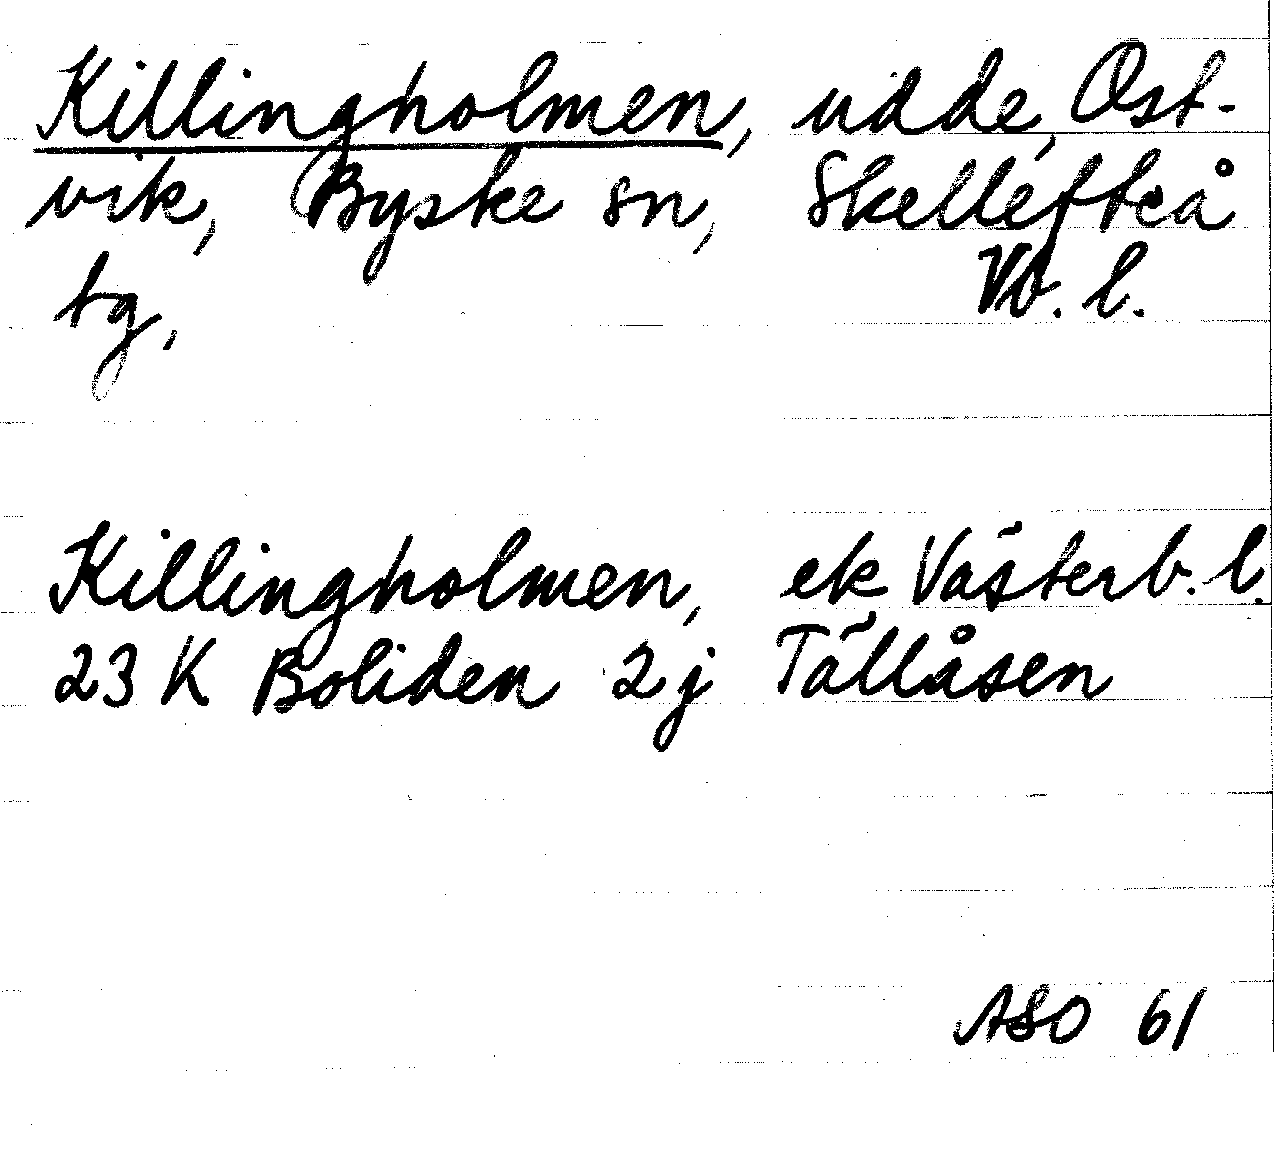 Killingholmen, udde, Ost-
vik, Byske sn, Skellefteå
tg, Vb. l.
Killingholmen, ek Västerb. l.
23 K Boliden 2j Tällåsen
ASO 61